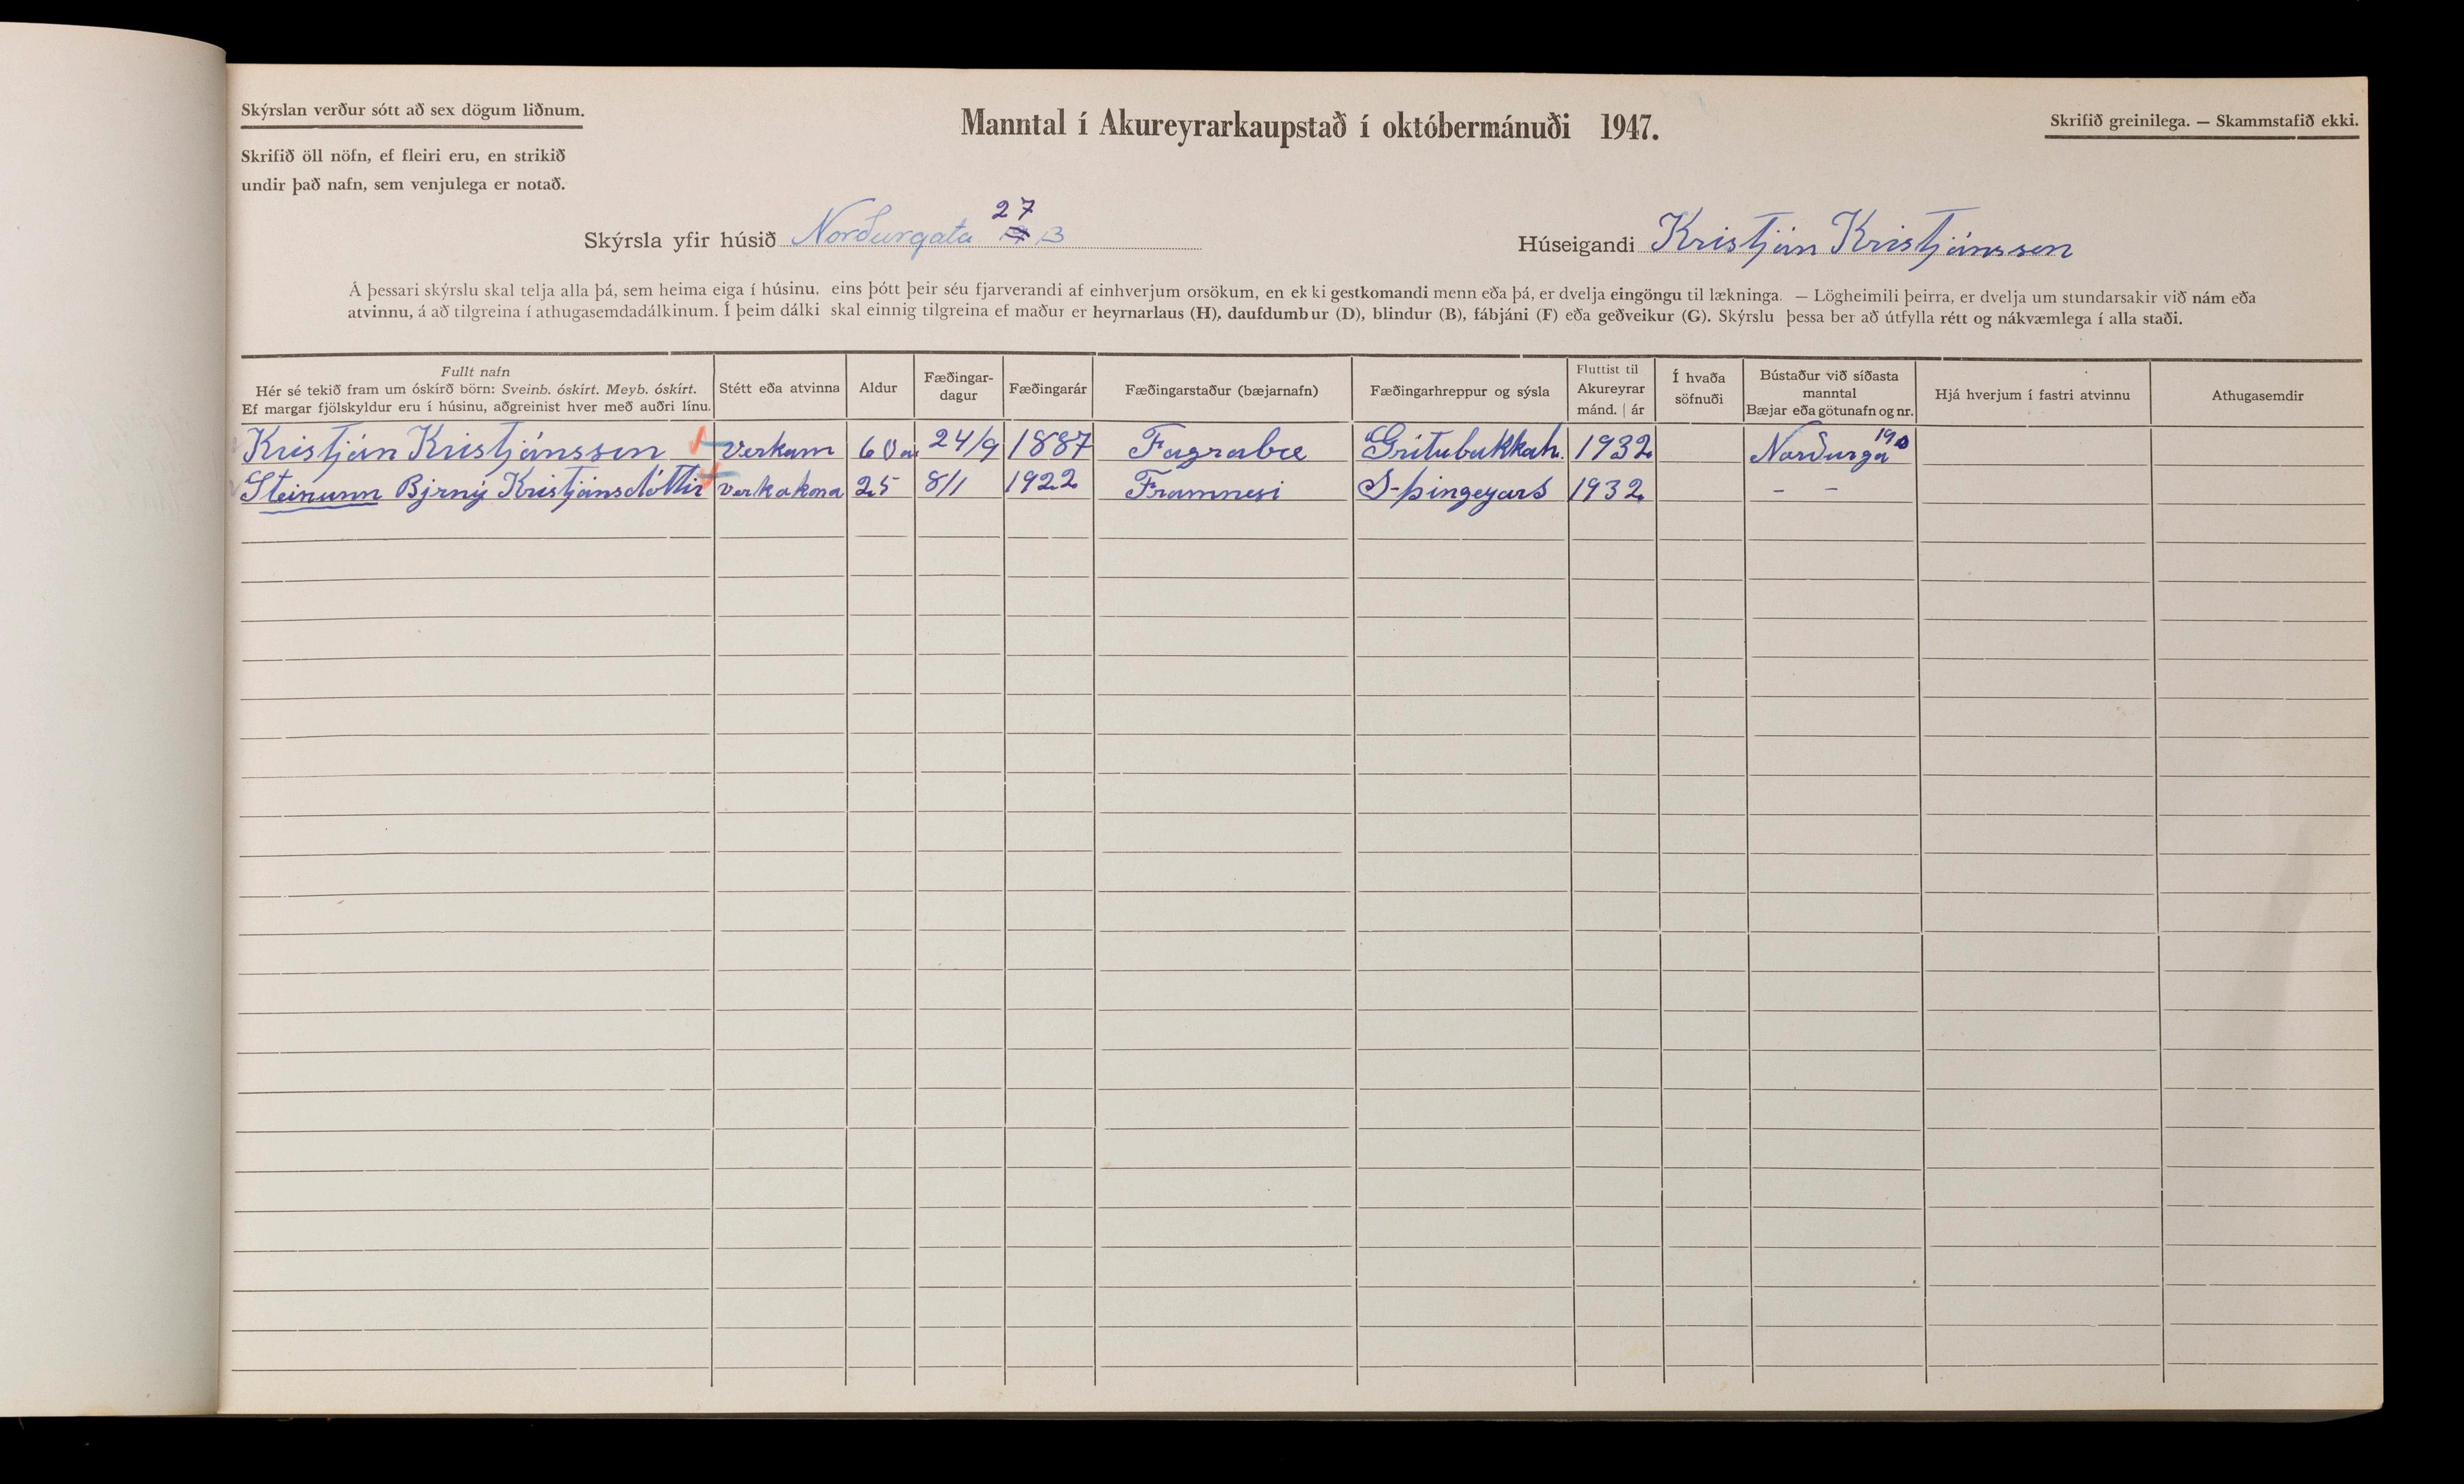 Skýrslan verður sótt að sex dögum liðnum.
Manntal í Akureyrarkaupstað í októbermánuði 1947.
Skrifið greinilega. — Skammstafið ekki.
Skrifið öll nöfn, ef fleiri eru, en strikið
undir það nafn, sem venjulega er notað.
Skýrsla yfir húsið Norðurgata 27 B
Húseigandi Kristján Kristjánsson
Á þessari skýrslu skal telja alla þá, sem heima eiga í húsinu, eins þótt þeir séu fjarverandi af einhverjum orsökum, en ekki gestkomandi menn eða þá, er dvelja eingöngu til lækninga. — Lögheimili þeirra, er dvelja um stundarsakir við nám eða
atvinnu, á að tilgreina í athugasemdadálkinum. Í þeim dálki skal einnig tilgreina ef maður er heyrnarlaus (H), daufdumbur (D), blindur (B), fábjáni (F) eða geðveikur (G). Skýrslu þessa ber að útfylla rétt og nákvæmlega í alla staði.
Fullt nafn
Hér sé tekið fram um óskírð börn: Sveinb. óskírt. Meyb. óskírt.
Ef margar fjölskyldur eru í húsinu, aðgreinist hver með auðri línu.
Stétt eða atvinna
Aldur
Fæðingar-
dagur
Fæðingarár
Fæðingarstaður (bæjarnafn)
Fæðingarhreppur og sýsla
Fluttist til
Akureyrar
mánd. | ár
Í hvaða
söfnuði
Bústaður við síðasta
manntal
Bæjar eða götunafn og nr.
Hjá hverjum í fastri atvinnu
Athugasemdir
Kristján Kristjánsson verkam 60 a 24/9 1887 Fagrabæ Grítubakkah. 1932 Norðurga 19
Steinunn Bjrný Kristjánsdóttir verkakona 25 8/1 1922 Framnesi S-þingeyars 1932 - -